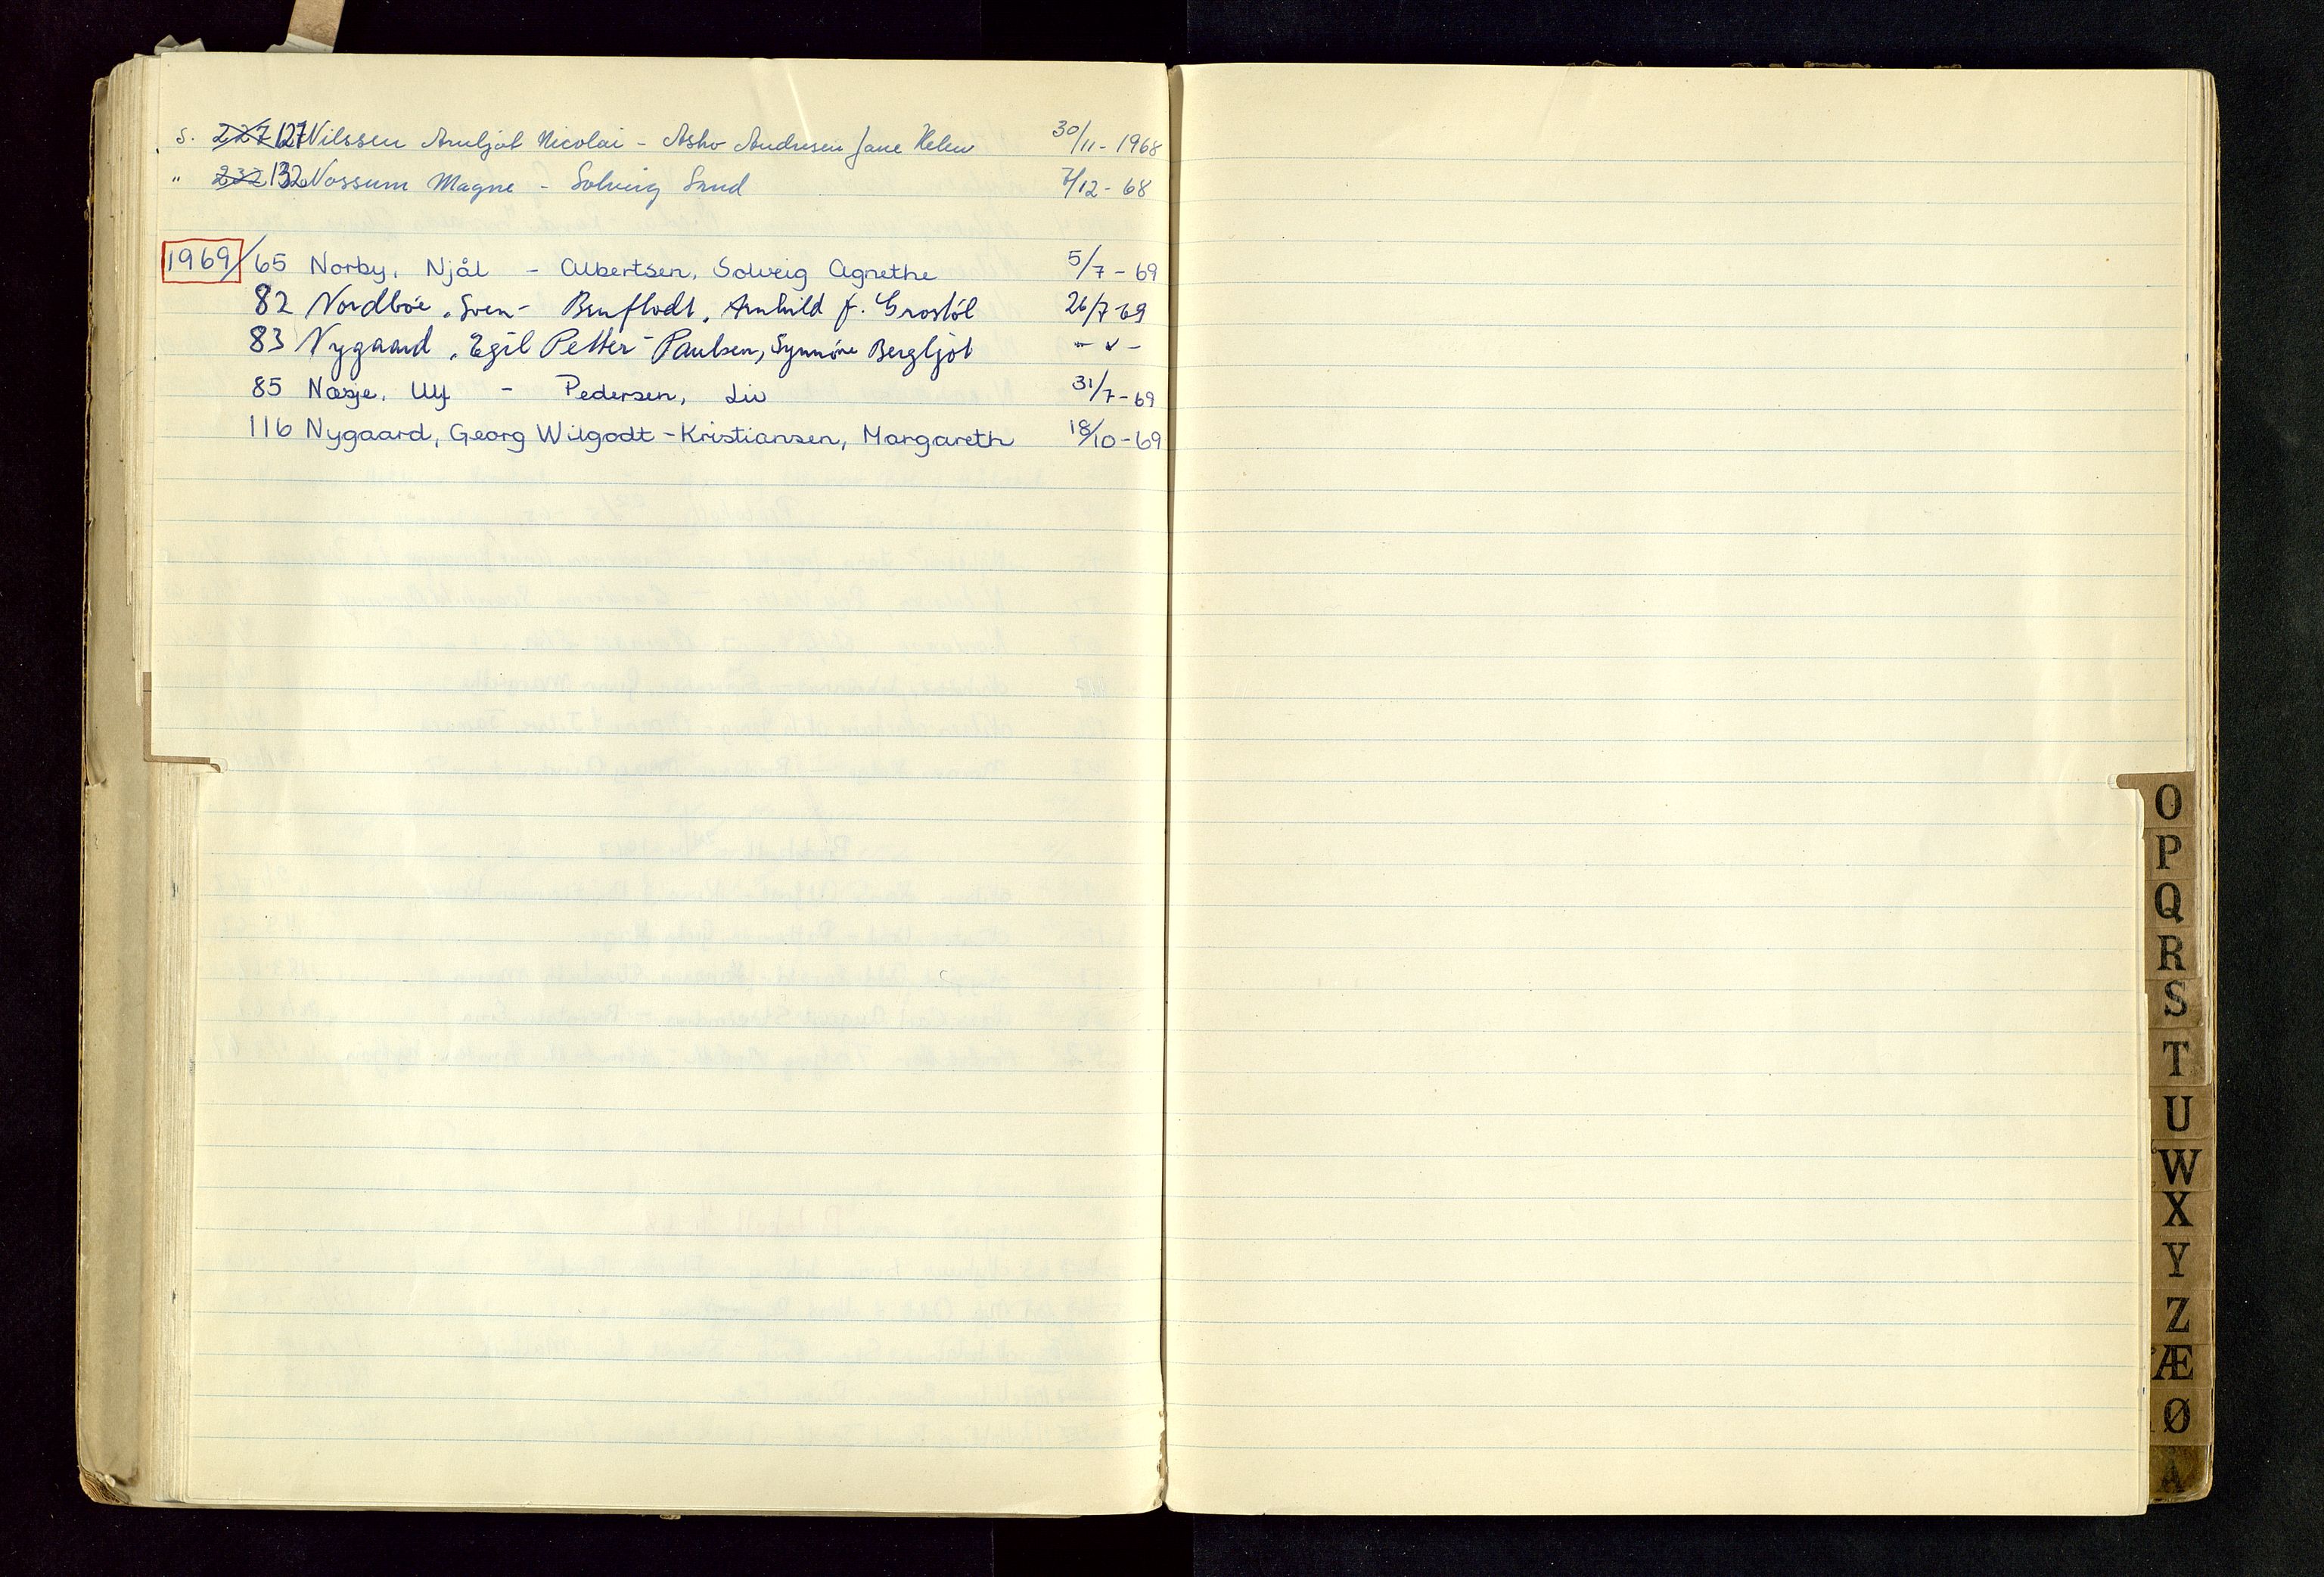 s. 227 127 Nilssen Arnljot Nicolai - Asho Andresen Jane Helen 30/11 - 1968
" 232 132 Nossum Magne - Solveig Sand 7/12 - 68
1969/65 Norby, Njål - Albertsen, Solveig Agnethe 5/7 - 69
82 Nordbøe, Sven - Arnhild f. 26/7-69
83 Nygaard, Egil Petter - Paulsen, Synnøve Bergljot - " -
85 Næsje, Ulf - Pedersen, Liv 31/7 - 69
116 Nygaard, Georg Wilgodt - Kristiansen, Margareth 18/10 - 69
O
P
Q
R
S
T
U
W
X
Y
Z
Æ
Ø
Å